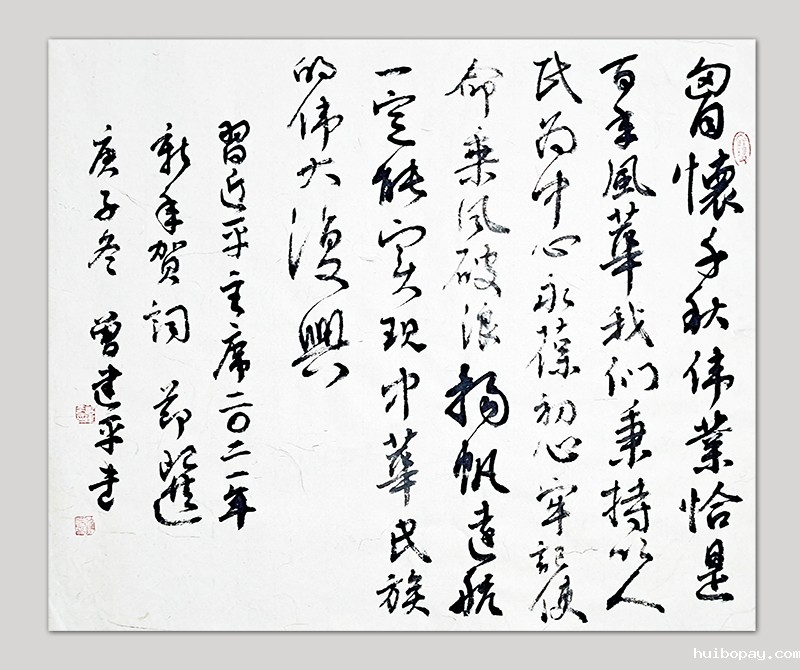 胷懷千秋伟業恰是
百年風華我们秉持以人
民为中心永葆初心牢記使
命乘风破浪揚帆遠航
一定能实现中華民族
的伟大復興
習近平主席二〇二一年
新年贺词节選
庚子冬 曾建平书
huibopay.com